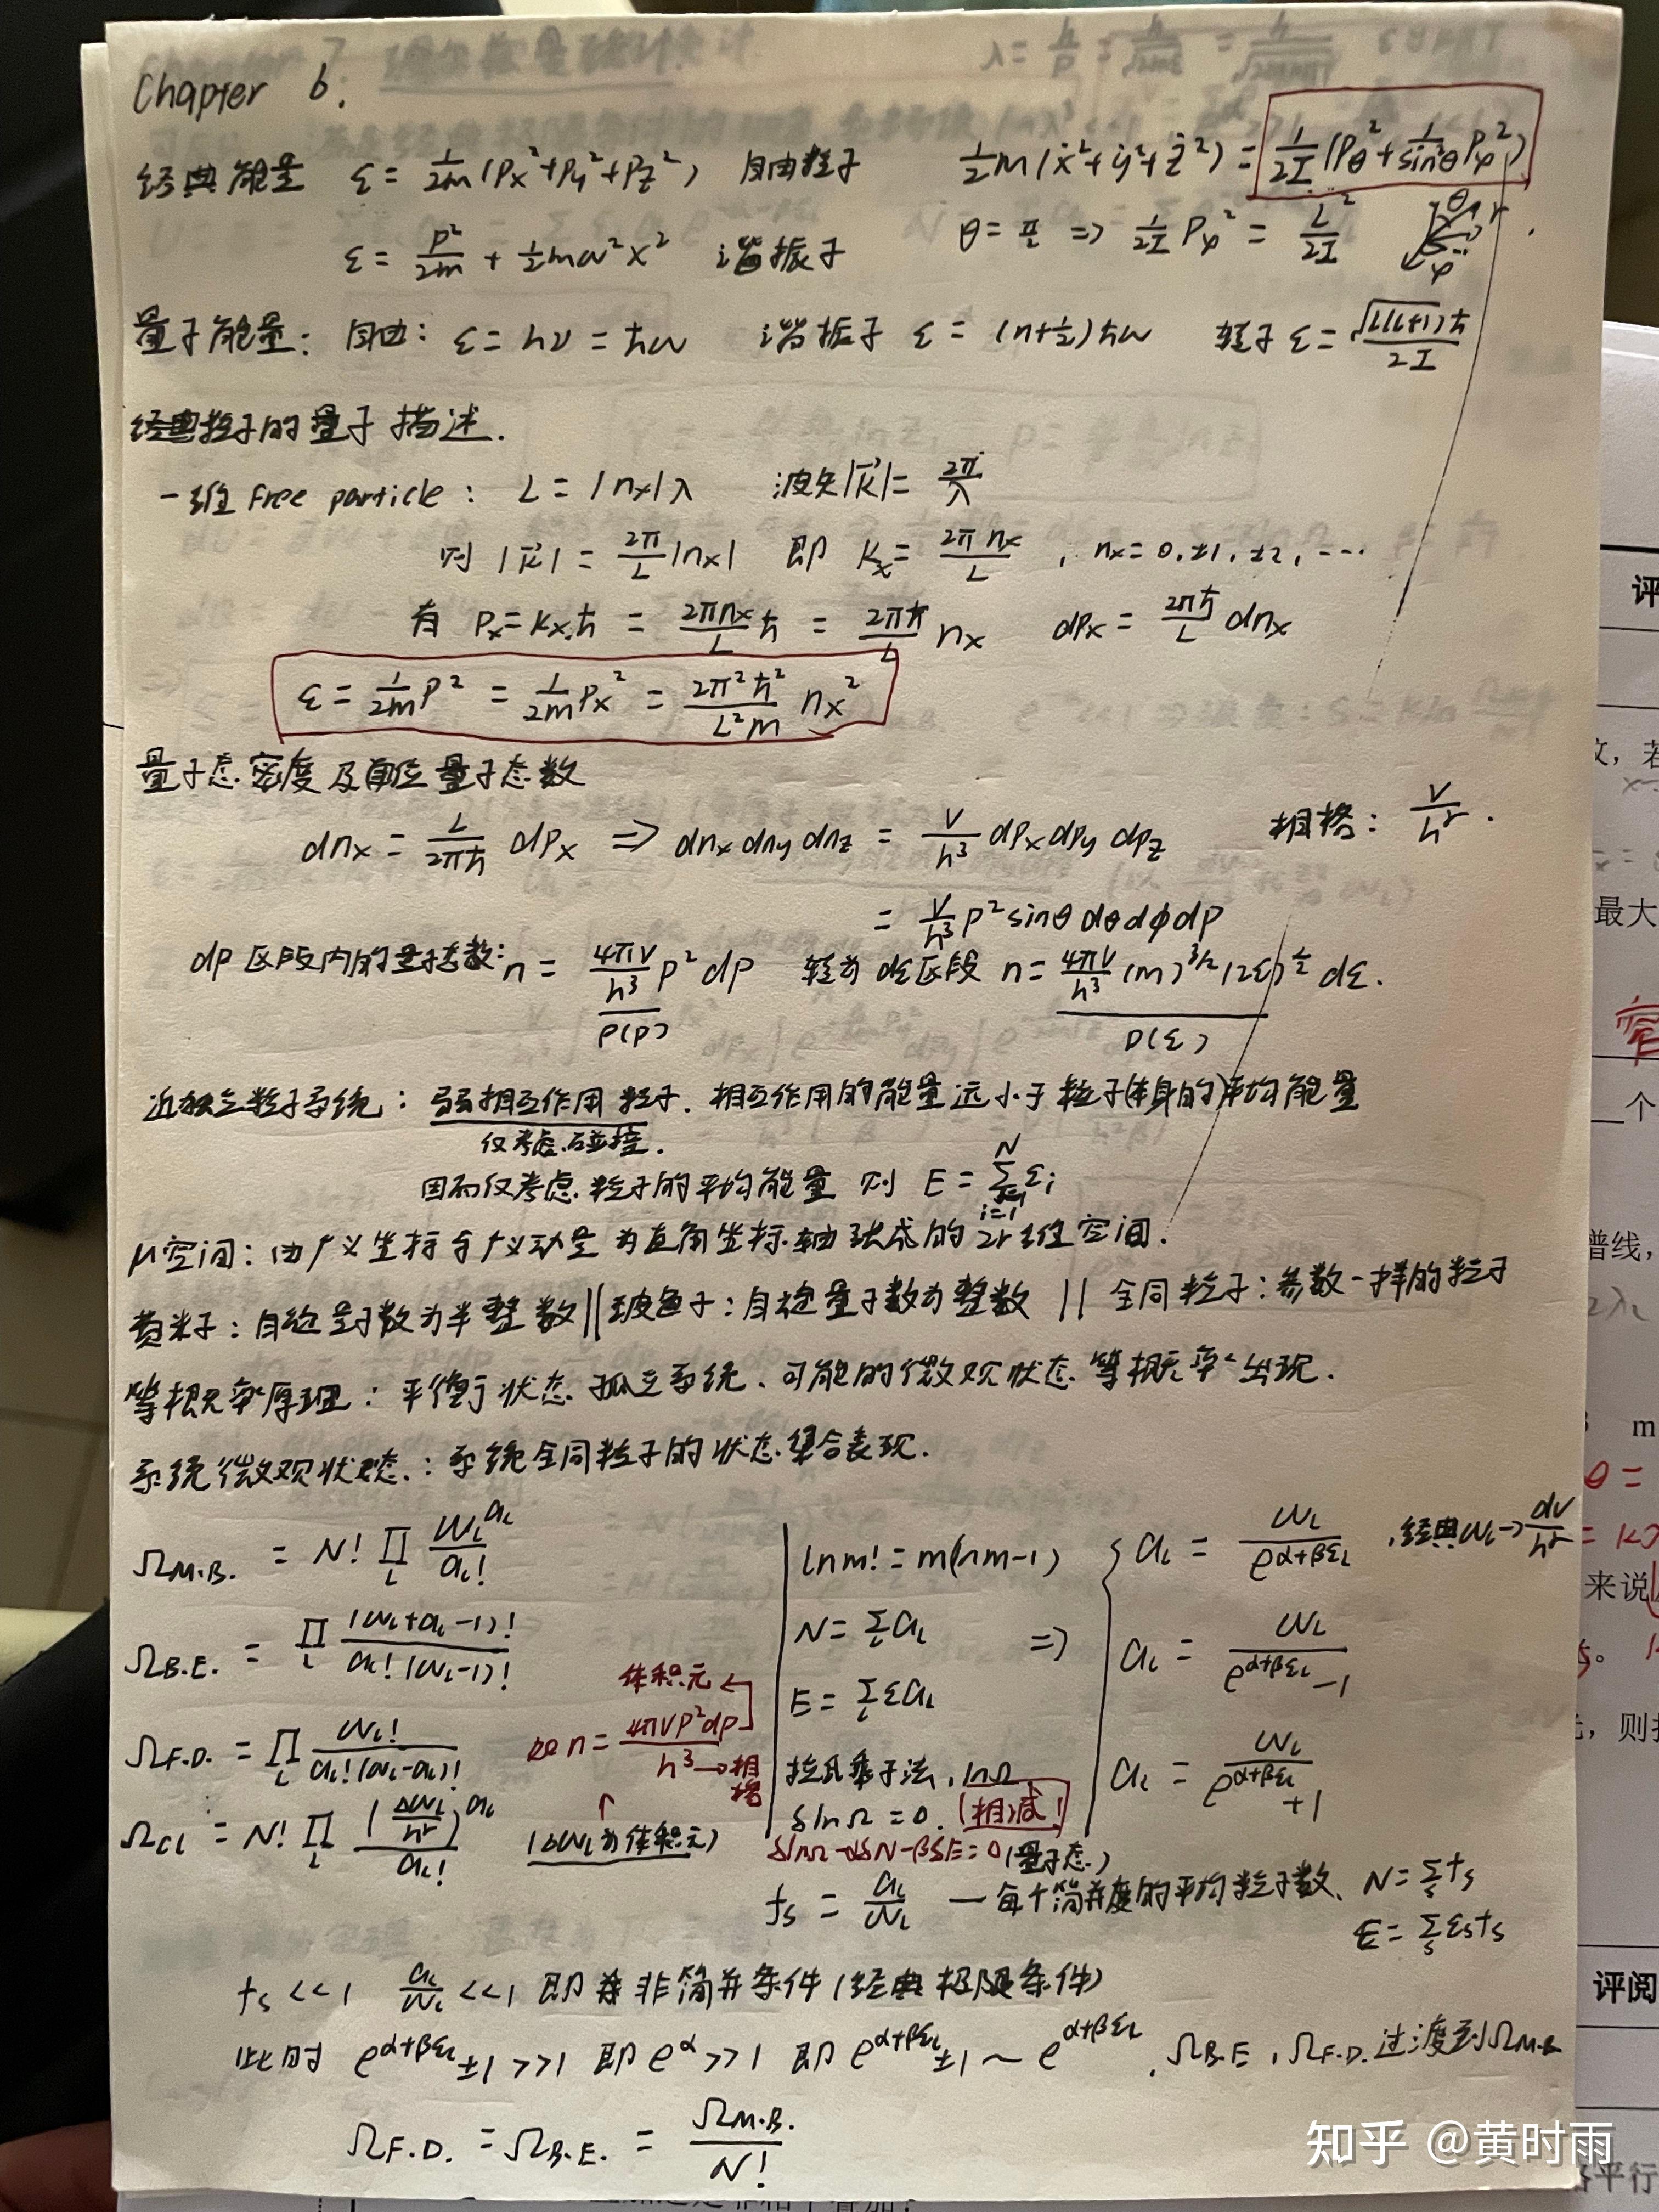 Chapter 6.
经典能量 ε = 1/2m (Px²+Py²+Pz²) 自由粒子 1/2 m(ẋ²+ẏ²+ż²) = 1/2I (Pθ² + 1/sin²θ Pφ²)
ε = P²/2m + 1/2 mω²x² 谐振子 θ = π/2 => 1/2I Pφ² = L²/2I
量子能量: 自由: ε = hν = ħω 谐振子 ε = (n+1/2)ħω 转子 ε = √(l(l+1))ħ / 2I
经典粒子的量子描述.
一维 Free particle: L = |nx|λ 波矢|k⃗| = 2π/λ
则 |k⃗| = 2π/L |nx| 即 Kx = 2πnx/L , nx = 0, ±1, ±2, ...
有 Px = Kx.ħ = 2πnx/L ħ = 2πħ/L nx dPx = 2πħ/L dnx
ε = 1/2m P² = 1/2m Px² = 2π²ħ²/L²m nx²
量子态密度及单位量子态数
dnx = L/2πħ dPx => dnx dny dnz = V/h³ dPx dPy dPz 相格: V/h^r .
= V/h³ P² sinθ dθ dϕ dP
dp区段内的量子态数: n = 4πV/h³ P² dP 转为dε区段 n = 4πV/h³ (m)^3/2 (2ε)^1/2 dε.
ρ(P) D(ε)
近独立粒子系统: 弱相互作用粒子. 相互作用的能量远小于粒子(本身的)平均能量
仅考虑碰撞.
因而仅考虑粒子的平均能量 则 E = Σ(i=1→N) εi
μ空间: 由广义坐标与广义动量为直角坐标轴张成的2r维空间.
费米子: 自旋量子数为半整数 || 玻色子: 自旋量子数为整数 || 全同粒子: 参数一样的粒子
等概率原理: 平衡状态孤立系统、可能的微观状态等概率出现.
系统微观状态: 系统全同粒子的状态集合表现.
Ω M.B. = N! ∏l ωl^al / al!
ln m! = m(ln m-1)
al = ωl / e^(α+βεl) , 经典ωl→dV/h^r
Ω B.E. = ∏l (ωl+al-1)! / al!(ωl-1)!
N = Σl al =>
al = ωl / (e^(α+βεl) -1)
体积元
E = Σl εal
Ω F.D. = ∏l ωl! / al!(ωl-al)!
如 n = 4πVP²dP / h³ → 相格
拉氏乘子法, lnΩ
al = ωl / (e^(α+βεl) +1)
δlnΩ = 0. (相减!)
Ω cl = N! ∏l (Δωl/h^r)^al / al! (Δωl为体积元)
δlnΩ-αδN-βδE = 0 (量子态)
fs = al/ωl — 每个简并度的平均粒子数、 N = Σs fs
E = Σs εs fs
fs << 1 al/ωl << 1 即 非简并条件(经典极限条件)
此时 e^(α+βεl) ±1 >> 1 即 e^α >> 1 即 e^(α+βεl) ±1 ~ e^(α+βεl) . Ω B.E , Ω F.D. 过渡到Ω M.B
Ω F.D. = Ω B.E. = Ω M.B. / N!
知乎 @黄时雨
评
个
最大
谱线,
m
θ =
来说
则
评阅
平行